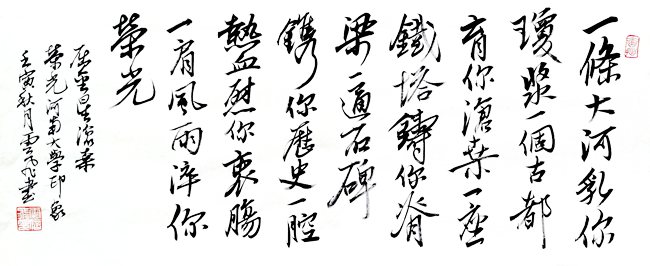 一條大河乳你
瓊漿一個古都
育你滄桑一座
鐵塔鑄你脊
梁一通石碑
鐫你歷史一腔
熱血慰你衷腸
一肩風雨淬你
榮光
榮光河南大學印象
壬寅秋月雲飛書